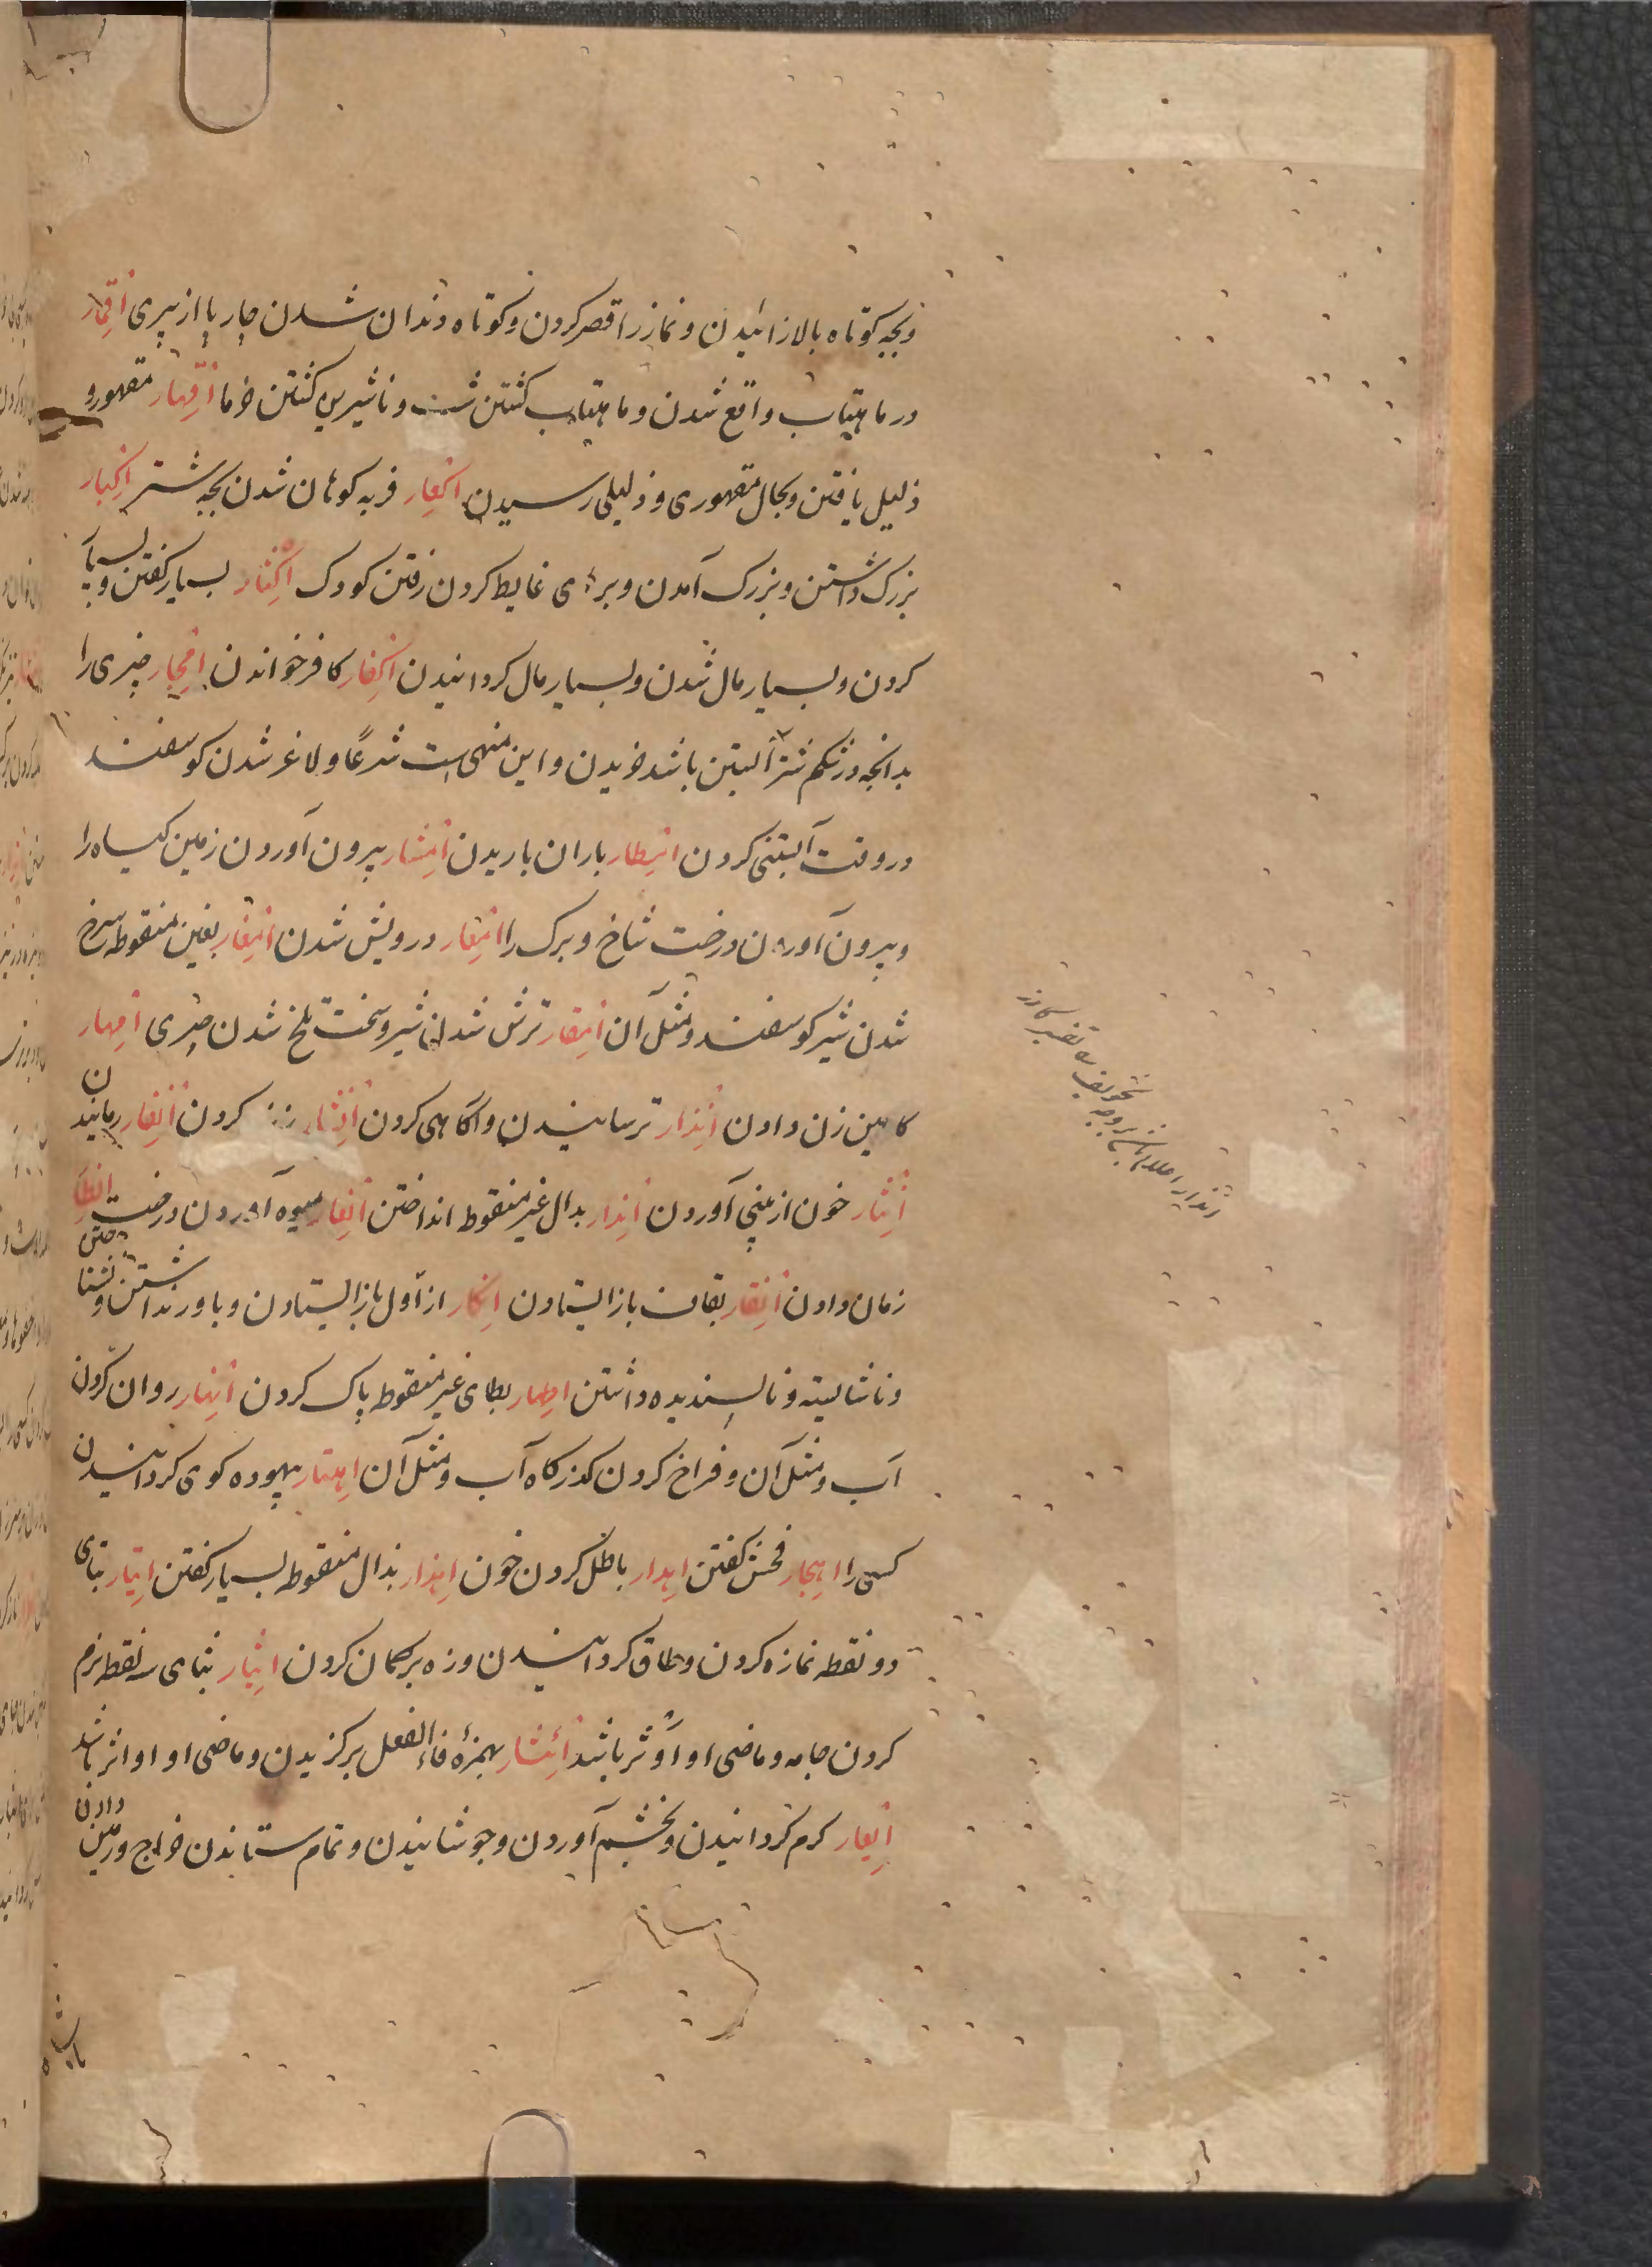 وبچه کوتاه بالا زائیدن ونماز را قصر کردن وکوتاه دندان شدن چارپا از پیری اقمار
در ماهتاب واقع شدن وماهتاب کشتن شب وناشیرین کشتن خرما اقهار مقهور و
ذلیل یافتن وبحال مقهوری وذلیلی رسیدن اکعار فربه کوهان شدن بچه شتر اکبار
بزرک داشتن وبزرک آمدن وبرای غایط کردن رفتن کودک اکثار بسیار کفتن وبسیار
کردن وبسیار مال شدن وبسیار مال کردانیدن اکفار کافر خواندن امجار چیزی را
بدانچه در شکم شتر آبستن باشد خریدن واین منهی است شرعا ولاغر شدن کوسفند
در وقت آبستنی کردن امطار باران باریدن امشار بیرون آوردن زمین کیاه را
وبیرون آوردن درخت شاخ وبرک را امعار درویش شدن امغار بغین منقوطه سرخ
شدن شیر کوسفند ومثل آن امقار ترش شدن شیر وسخت تلخ شدن چیزی امهار
کابین زن دادن انذار ترسانیدن وآکاهی کردن انشار زنده کردن انفار رمانیدن
انثار خون از بینی آوردن اندار بدال غیر منقوط انداختن میوه آوردن درخت انظار
زمان دادن انقار بقاف باز ایستادن انکار از اول باز ایستادن وباور نداشتن ونشناختن
وناشایسته وناپسندیده داشتن اطهار بطای غیر منقوط پاک کردن انهار روان کردن
آب ومثل آن وفراخ کردن کذرکاه آب ومثل آن اهتار بیهوده کوی کردانیدن
کسی را اهجار فحش کفتن اهدار باطل کردن خون اهذار بذال منقوطه بسیار کفتن ایتار بتای
دو نقطه نماز کردن وطاق کردانیدن وزه بر کمان کردن ایثار بثای سه نقطه نرم
کردن جامه وماضی او اوثر باشد ائثار بهمزهٔ فاء الفعل برکزیدن وماضی او اواثر باشد
ایغار کرم کردانیدن وبخشم آوردن وجوشانیدن وتمام ستاندن خراج وزمین دادن